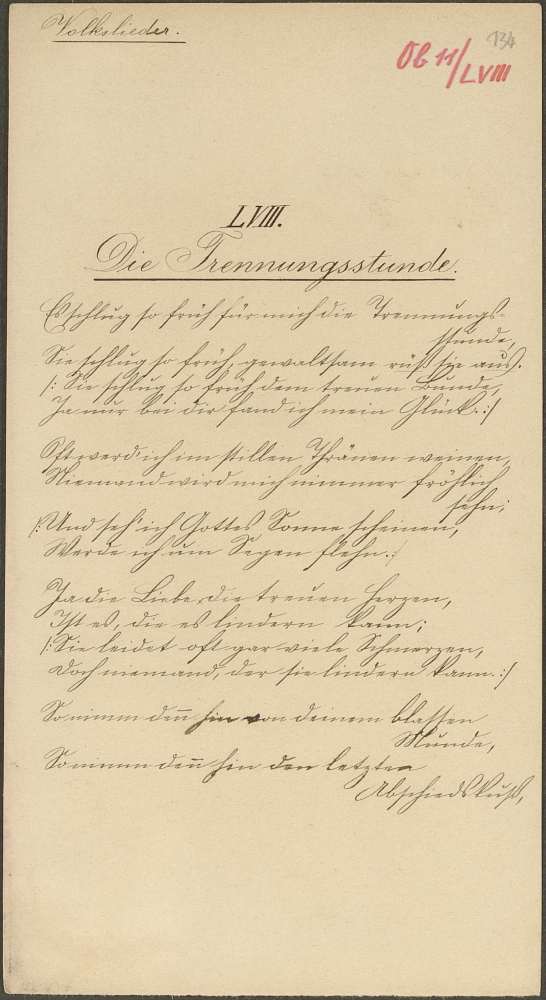 Volkslieder.
134
Ob 11/LVIII
LVIII.
Die Trennungsstunde.
Es schlug so früh für mich die Trennungs-
stunde,
Sie schlug so früh, gewaltsam aus.
/: Sie schlug so früh dem treuen Bunde,
Ja nur bei dir fand ich mein Glück. :/
Oft werd' ich im stillen Thränen weinen,
Niemand wird mich nimmer fröhlich
sehn;
/: Und seh' ich Gottes Sonne scheinen,
Werde ich um Segen flehn. :/
Ja die Liebe, die treuen Herzen,
Ist es, die es lindern kann;
/: Sie leidet oft gar viele Schmerzen,
Doch niemand, der sie lindern kann. :/
So nimm den̅ hin von deinem blassen
Munde,
So nimm den̅ hin den letzten
Abschiedskuß,